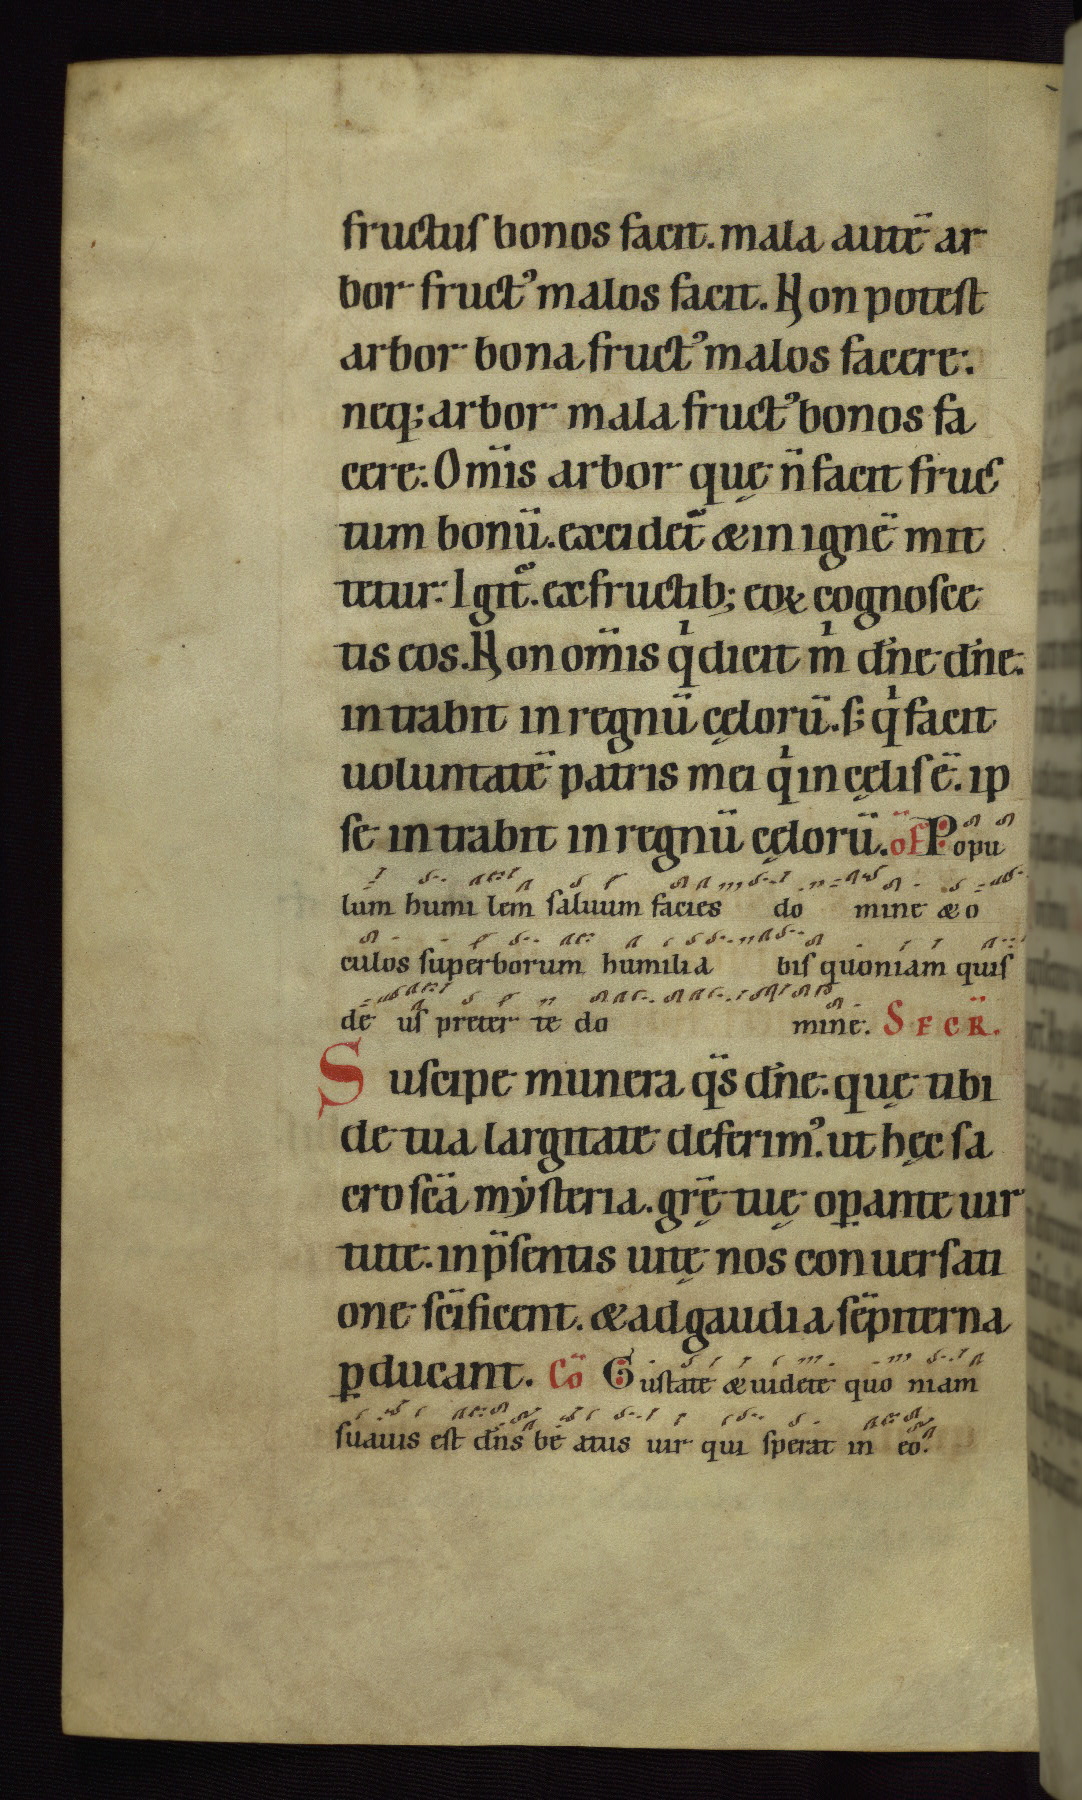 fructuſ bonos facit. mala autē ar
bor fructꝰ malos facit. Non poteſt
arbor bona fructꝰ malos facere:
neq; arbor mala fructꝰ bonos fa
cere: Om̄is arbor quę n̄ facit fruc
tum bonū. excidet̄ & in ignē mit
tetur: Igit̄. ex fructib; eoꝝ cognoſce
tis eos. Non om̄is qͥ dicit mͥ dn̄e dn̄e:
intrabit in regnū cęlorū. ſ; qͥ facit
uoluntatē patris mei qͥ in cęliſ ē. ip
ſe intrabit in regnū cęlorū. of̄ Popu
lum humi lem ſaluum facies do mine & o
culos ſuperborum humilia biſ quoniam quiſ
de uſ preter te do mine. SECR̄.
Suſcipe munera qs̄ dn̄e. quę tibi
de tua largitate deferimꝰ. ut hęc ſa
cro ſc̄a myſteria. gr̄ę tuę oꝑante uir
tute. in p̄ſentis uitę nos conuerſati
one ſc̄ificent. & ad gaudia ſēpiterna
ꝑducant. Cō Guſtate & uidete quo niam
ſuauis eſt dn̄s be atus uir qui ſperat in eo.